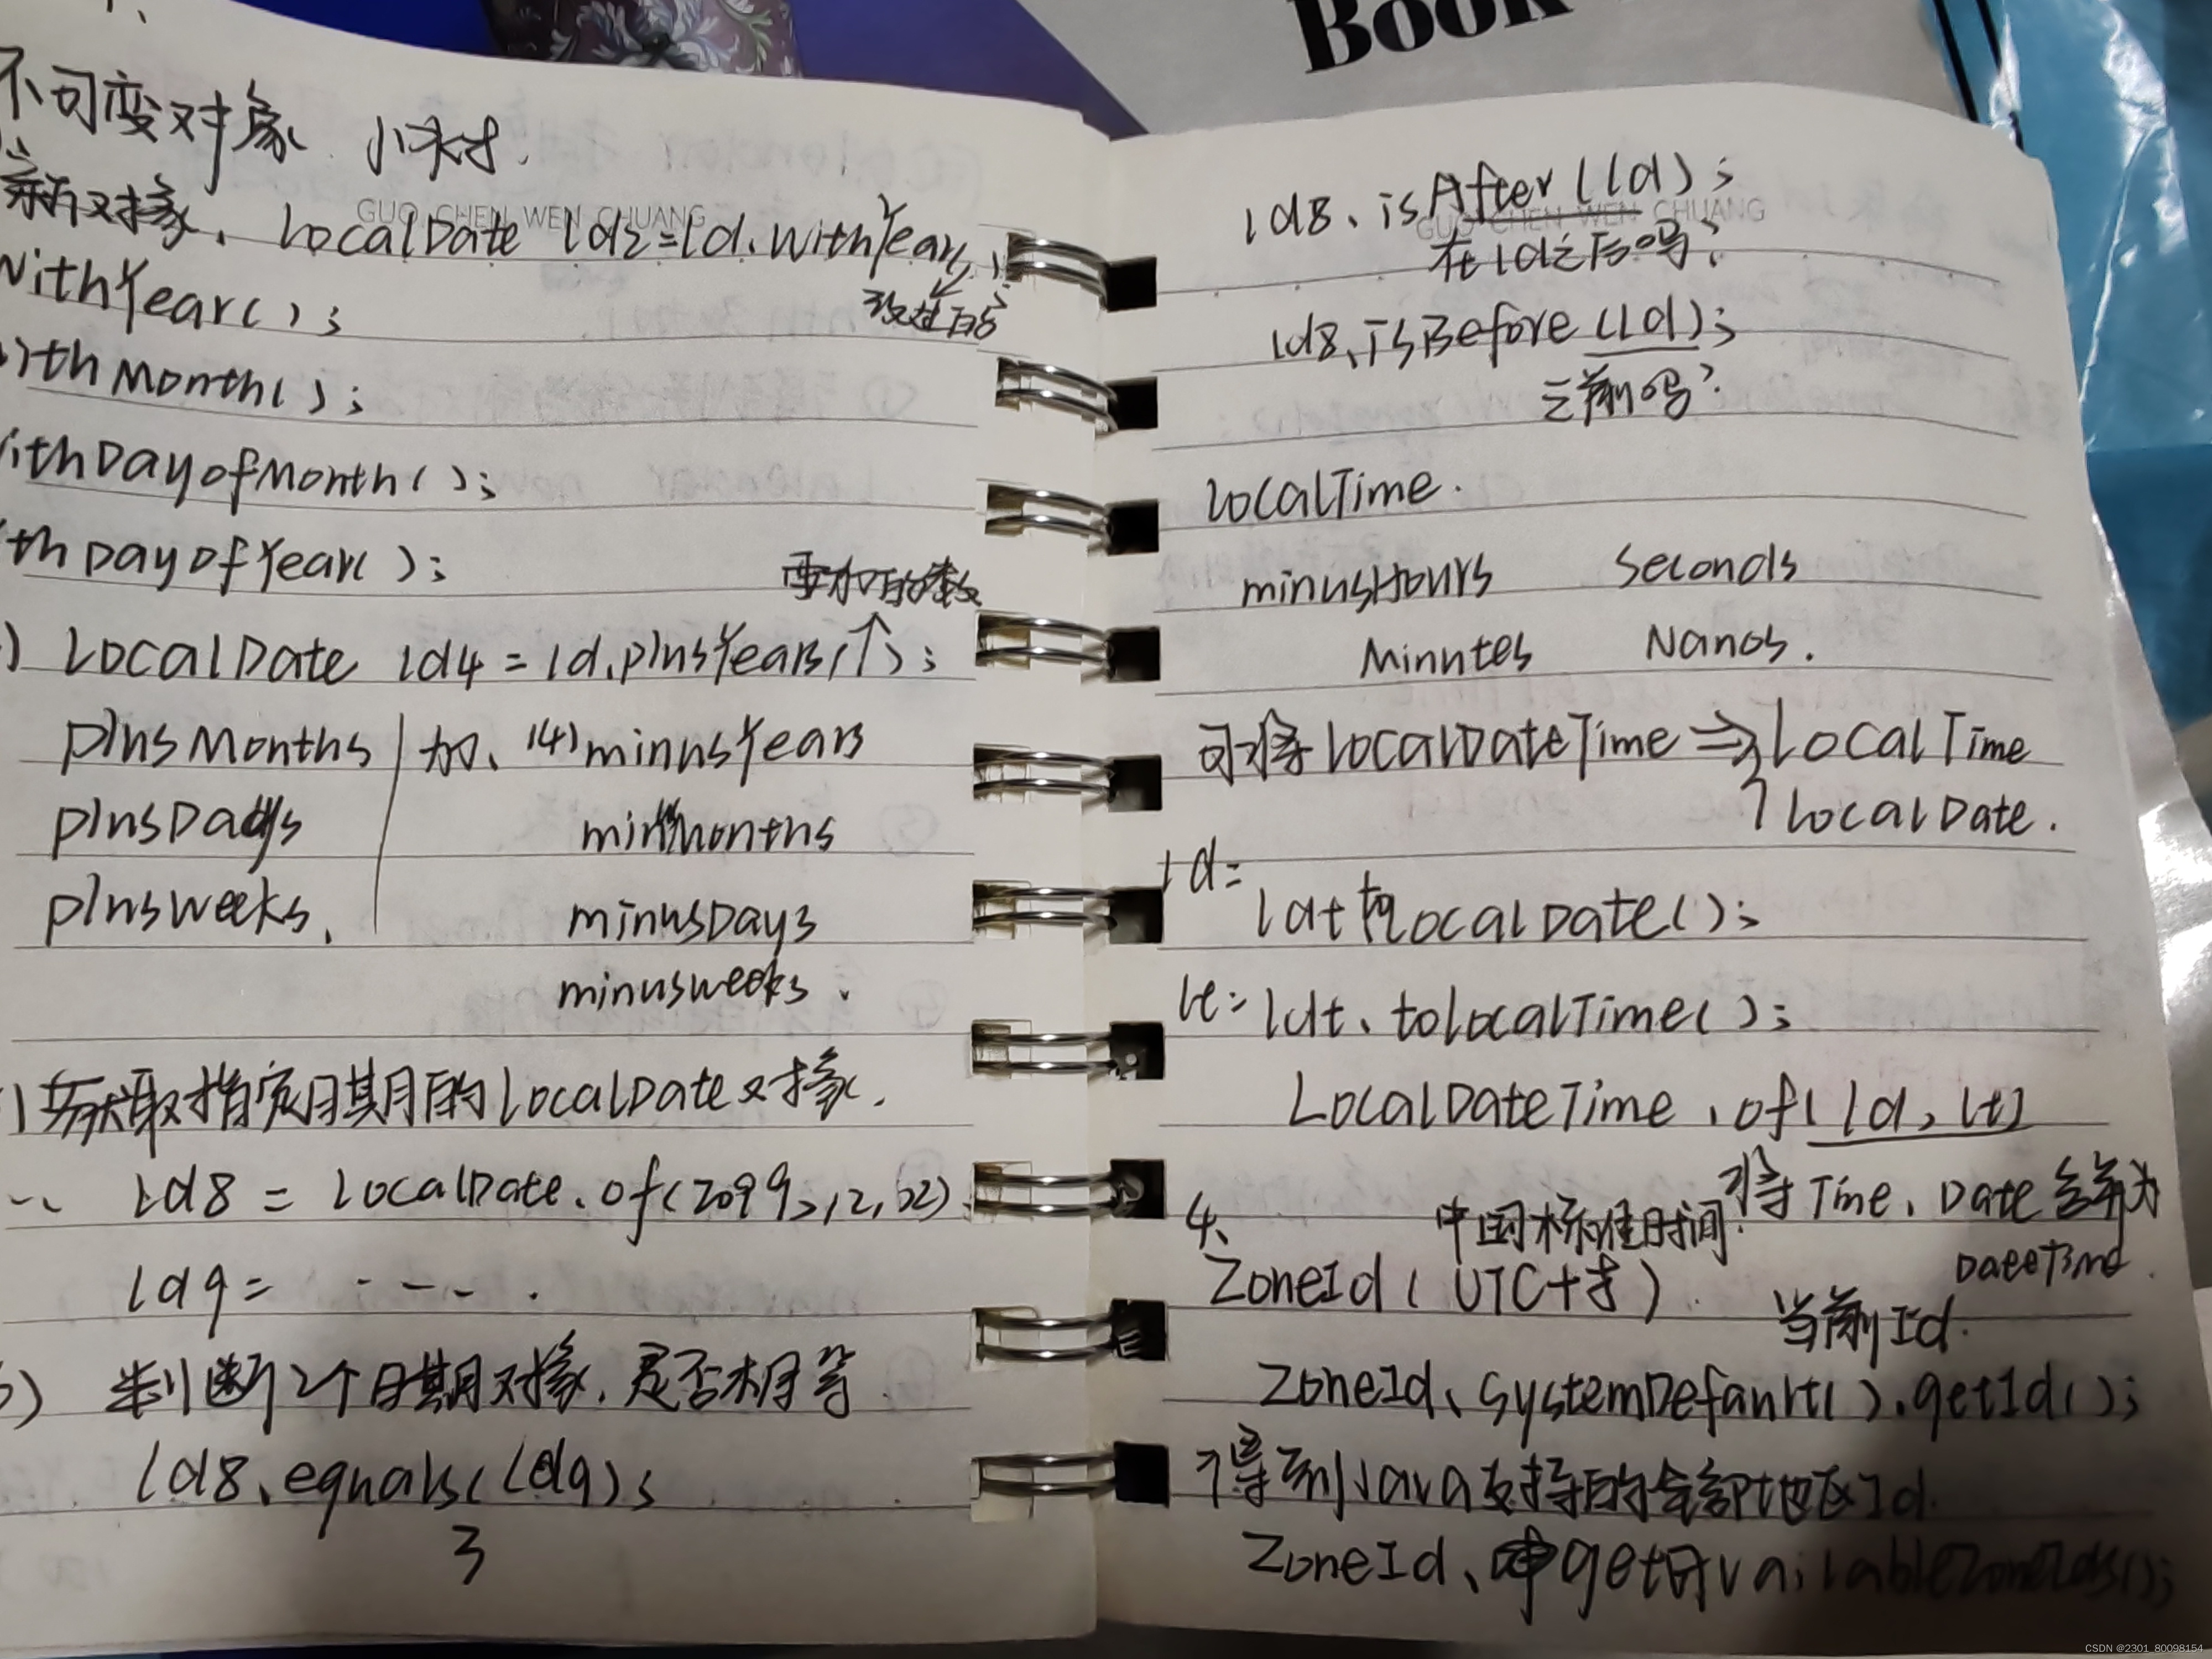 Book
不可变对象
新对象. LocalDate ld2=ld.withYear( );
改过的
withYear();
withMonth();
withDayofMonth();
thDayOfYear();
要加的数
) LocalDate ld4 = ld.plusYears(↑);
plusMonths 加、 (4) minusYears
plusDays minusMonths
plusweeks. minusDays
minusweeks.
)获取指定日期的LocalDate对象.
ld8 = LocalDate.of(2099,12,
ld9= ---- .
) 判断2个日期对象.是否相等
ld8.equals(ld9);
3
GUO CHEN WEN CHUANG
GUO CHEN WEN CHUANG
ld8.isAfter(ld);
在ld之后吗?
ld8.isBefore(ld);
之前吗?
LocalTime.
minusHours Seconds
Minutes Nanos.
可将LocalDateTime⇒LocalTime
LocalDate.
ld=
ldt LocalDate();
lt=ldt.toLocalTime();
LocalDateTime.of(ld,lt)
将Time、Date合并为
DateTime.
4、 中国标准时间.
ZoneId(UTC+8)
当前Id.
ZoneId.systemDefault().getId();
得到Java支持的全部地区Id.
ZoneId.getAvailableZoneIds();
CSDN @2301_80098154